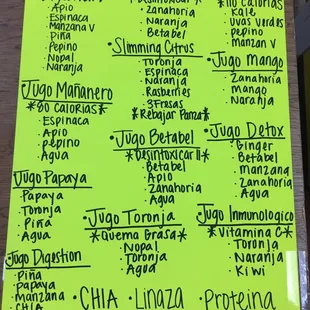 Apio
Espinaca
Manzana V
Piña
Pepino
Nopal
Naranja
Jugo Mañanero
*80 Calorias*
Espinaca
Apio
Pepino
Agua
Jugo Papaya
Papaya
Toronja
Piña
Agua
Jugo Digestion
Piña
Papaya
Manzana
Chia
Zanahoria
Naranja
Betabel
•Slimming Citrus
Toronja
Espinaca
Naranja
Rasberries
3Fresas
*Rebajar Panza*
•Jugo Betabel
*Desintoxicar II*
Betabel
Apio
Zanahoria
Agua
•Jugo Toronja
*Quema Grasa*
Nopal
Toronja
Agua
*110 Calorias*
Kale
Uvas verdes
pepino
manzan V
•Jugo mango
Zanahoria
mango
Naranja
•Jugo Detox
Ginger
Betabel
Manzana
Zanahoria
Agua
Jugo Inmunologico
*Vitamina C*
Toronja
Naranja
Kiwi
•CHIA •Linaza •Proteina